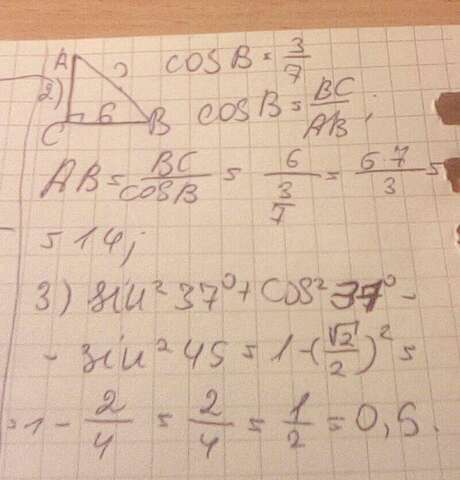 2) A C B 6 ? cos B = 3/7
cos B = BC/AB;
AB = BC/cos B = 6/(3/7) = 6·7/3 =
= 14;
3) sin² 37° + cos² 37° -
- sin² 45 = 1 - (√2/2)² =
= 1 - 2/4 = 2/4 = 1/2 = 0,5.